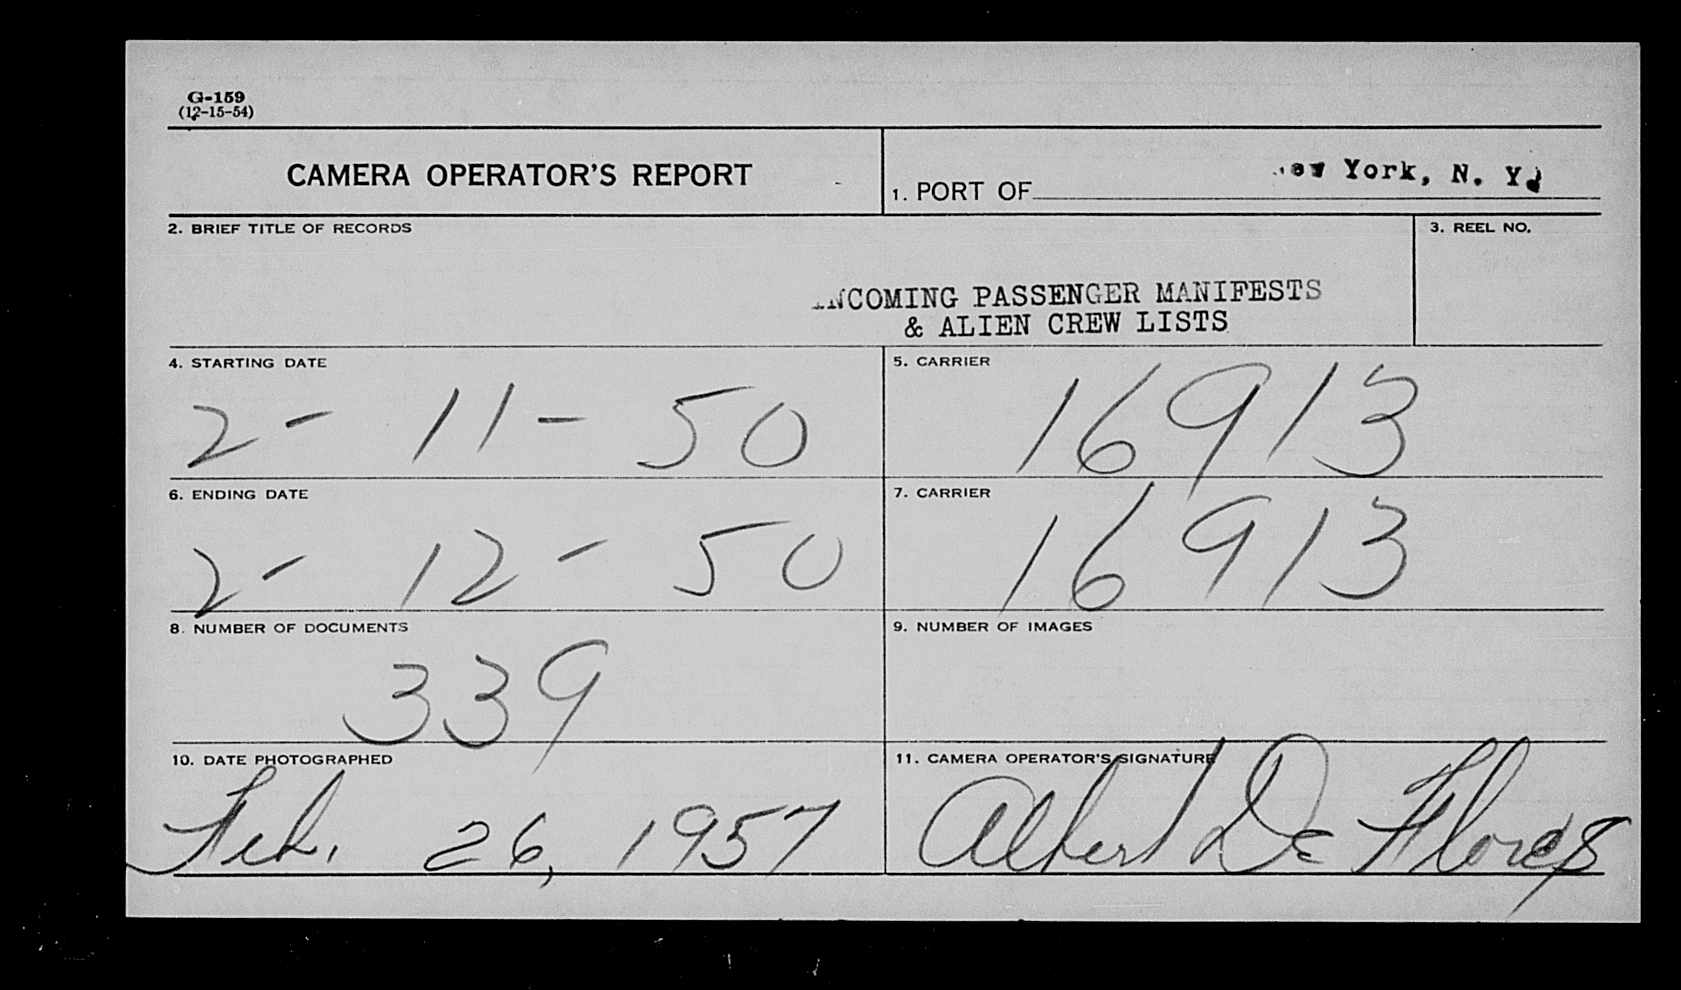 G-159
(12-15-54)
CAMERA OPERATOR'S REPORT
1. PORT OF New York, N. Y.
2. BRIEF TITLE OF RECORDS
3. REEL NO.
INCOMING PASSENGER MANIFESTS
& ALIEN CREW LISTS
4. STARTING DATE
5. CARRIER
2- 11- 50
16913
6. ENDING DATE
7. CARRIER
2- 12- 50
16913
8. NUMBER OF DOCUMENTS
9. NUMBER OF IMAGES
339
10. DATE PHOTOGRAPHED
11. CAMERA OPERATOR'S SIGNATURE
Feb. 26, 1957
Albert De Flores